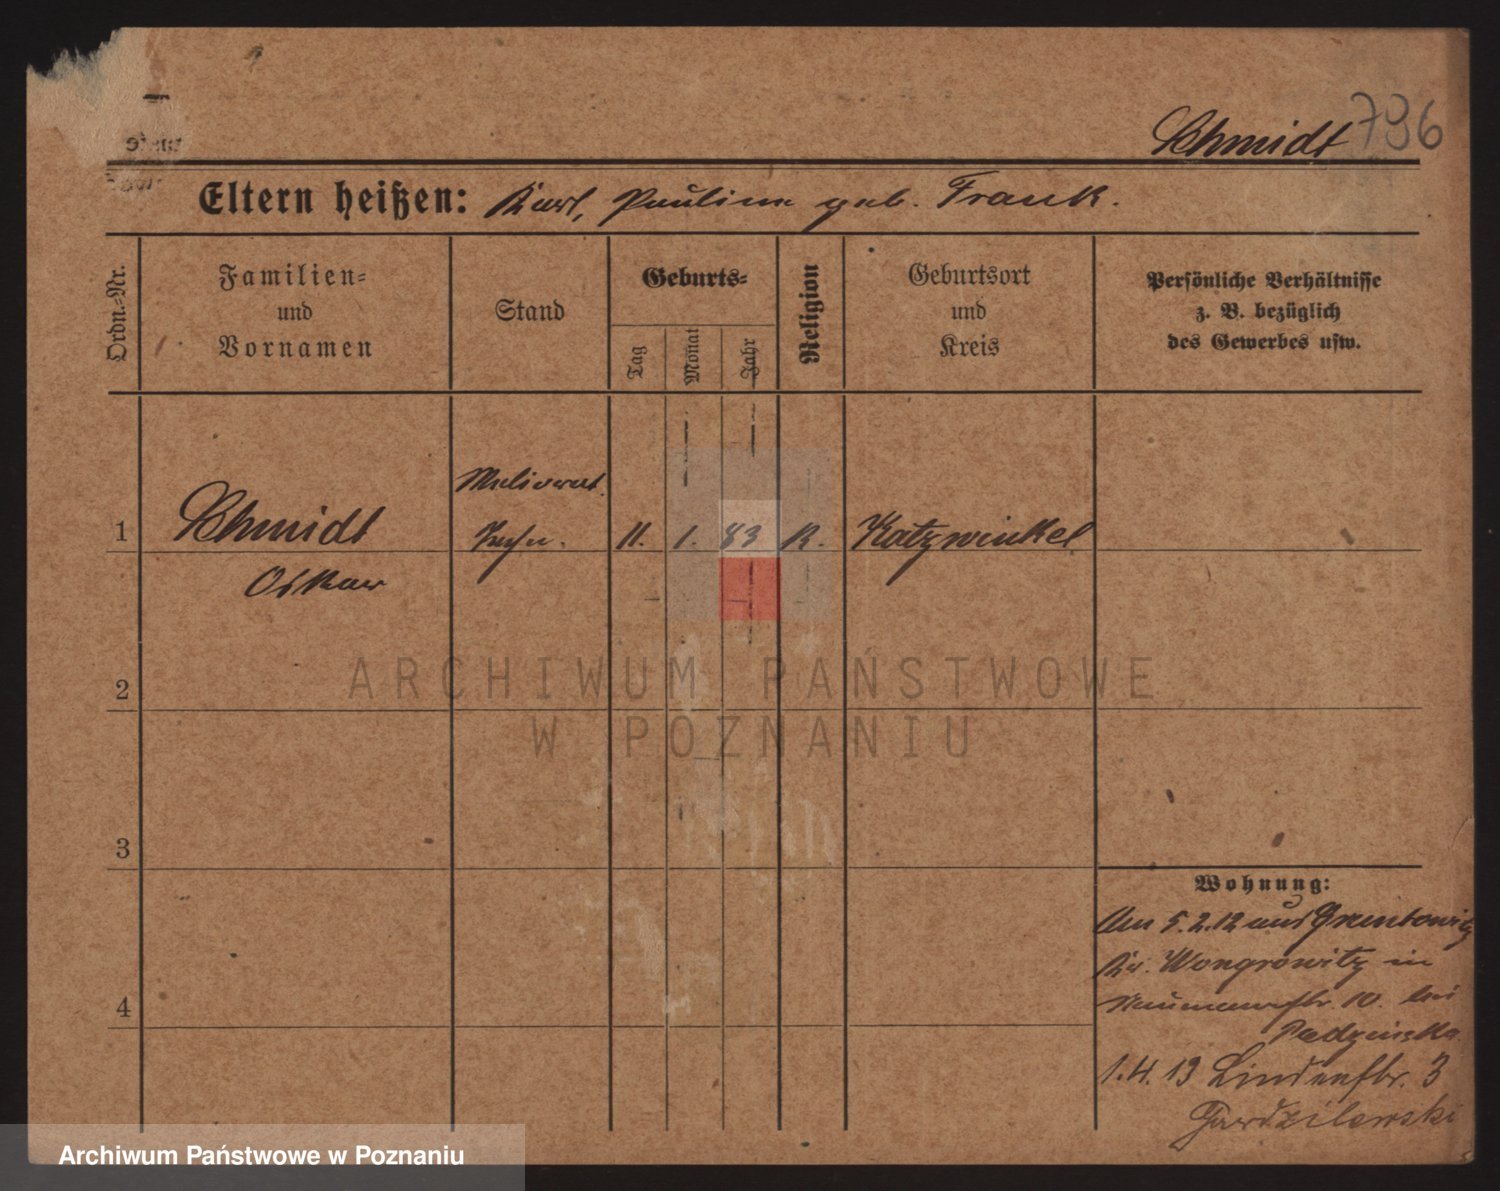 Schmidt 796
Eltern heißen: Karl, Pauline geb. Frank.
Ordn.-Nr.
Familien-
und
Vornamen
Stand
Geburts-
Tag
Monat
Jahr
Religion
Geburtsort
und
Kreis
Persönliche Verhältnisse
z. B. bezüglich
des Gewerbes usw.
Meliorat.
1 Schmidt Techn. 11. 1. 83 K. Katzwinkel
Oskar
ARCHIWUM PAŃSTWOWE
2
W POZNANIU
3
Wohnung:
Am 5.2.12 aus
Kr. Wongrowitz in
4
Naumannstr. 10. bei
1.4.13 Lindenstr. 3
Archiwum Państwowe w Poznaniu